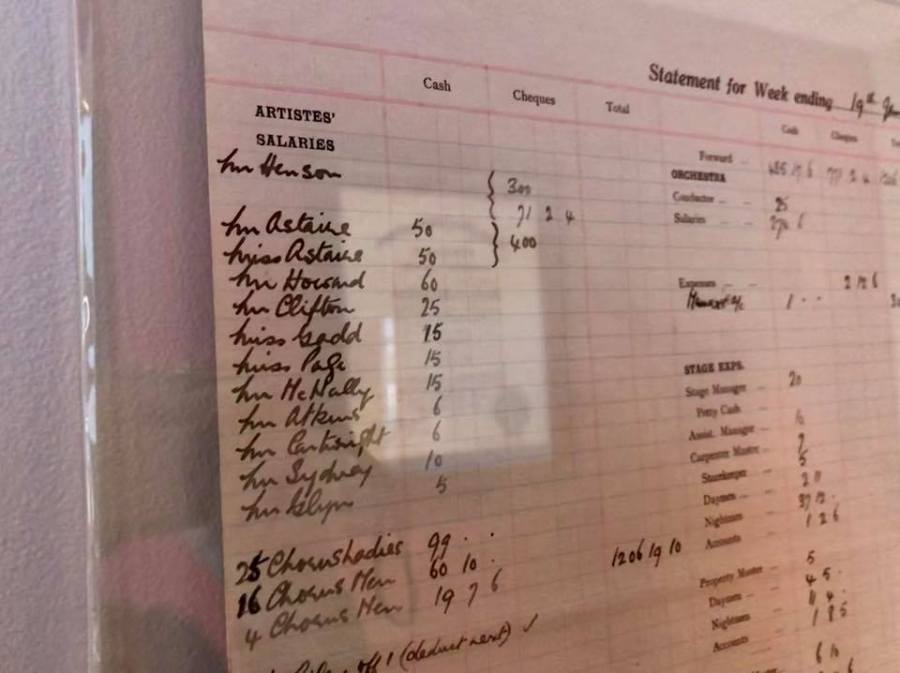 Statement for Week ending 19th
Cash Cheques Total
ARTISTES'
SALARIES
Mr Henson 300
71 2 4
Mr Astaire 50 400
Miss Astaire 50
Mr Howard 60
Mr Clifton 25
Miss Gadd 15
Miss Page 15
Mr McNally 15
Mr Atkins 6
Mr Cartwright 6
Mr Sydney 10
Mr Glyn 5
25 Chorus Ladies 99 . .
16 Chorus Men 60 10 .
4 Chorus Men 19 7 6
1206 19 10
off 1 (deduct next) ✓
Cash Cheques
Forward
ORCHESTRA
Conductor 25
Salaries
Expenses 2 12 6
1 . .
STAGE EXPS.
Stage Manager 20
Petty Cash
Assist. Manager 6
Carpenter Master 7
Storekeeper 5
Daymen
Nightmen 37 12 .
Accounts 1 2 6
Property Master 5
Daymen 4 5 .
Nightmen
Accounts